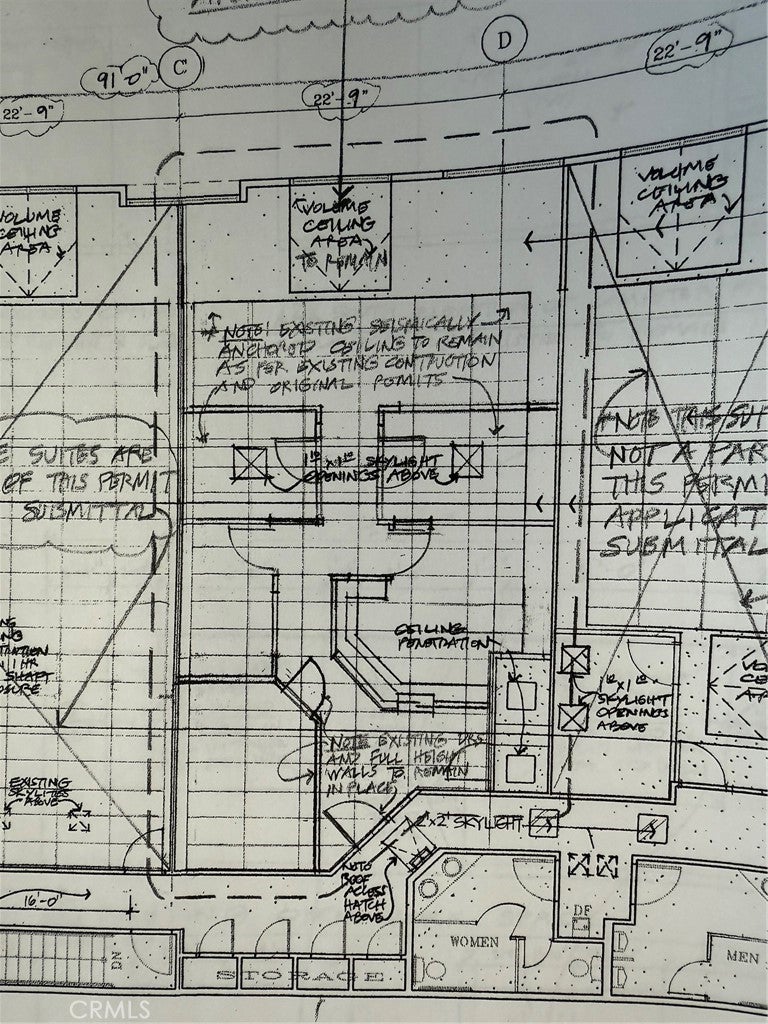 C
D
91'-0"
22'-9"
22'-9"
22'-9"
VOLUME
CEILING
AREA
VOLUME
CEILING
AREA
TO REMAIN
VOLUME
CEILING
AREA
NOTE! EXISTING SEISMICALLY
ANCHORED CEILING TO REMAIN
AS PER EXISTING CONTRUCTION
AND ORIGINAL PERMITS
E SUITES ARE
OF THIS PERMIT
SUBMITTAL
NOTE THIS SUIT
NOT A PAR
THIS PERMI
APPLICAT
SUBMITTAL
SKYLIGHT
OPENINGS ABOVE
CEILING
PENETRATION
SKYLIGHT
OPENINGS
ABOVE
1 HR
SHAFT
NOTE EXISTING
AND FULL HEIGHT
WALLS TO REMAIN
IN PLACE
EXISTING
SKYLITES
ABOVE
2'x2' SKYLIGHT
NOTE
ROOF
ACCESS
HATCH
ABOVE
16'-0"
DN
STORAGE
WOMEN
DF
MEN
CRMLS